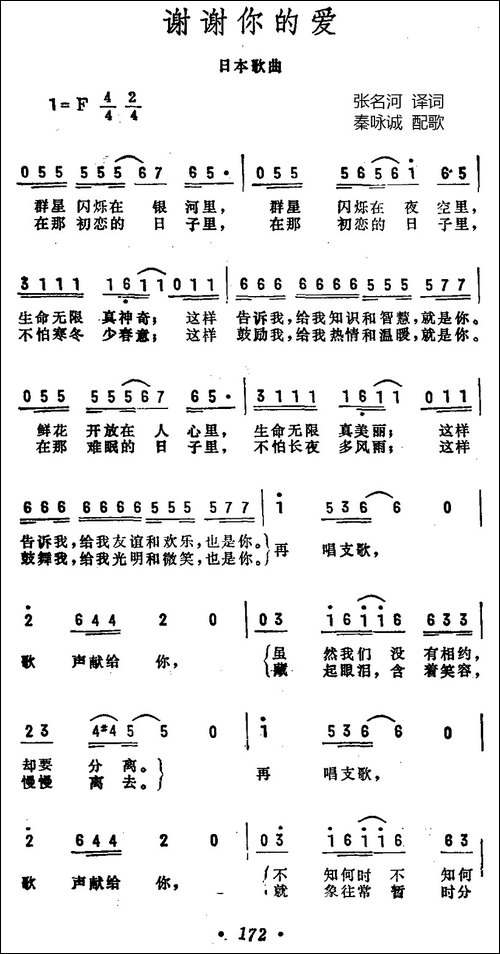 谢谢你的爱
日本歌曲
1=F 4/4 2/4
张名河 译词
秦咏诚 配歌
055 555 67 65· | 055 56561 6·5 |
群星 闪烁在 银 河里, 群星 闪烁在 夜 空里,
在那 初恋的 日 子里, 在那 初恋的 日 子里,
3111 1611 011 | 666 66666 555 577 |
生命无限 真神奇; 这样 告诉我,给我知识和智慧,就是你。
不怕寒冬 少春意; 这样 鼓励我,给我热情和温暖,就是你。
055 55567 65· | 3111 1611 011 |
鲜花 开放在 人 心里, 生命无限 真美丽; 这样
在那 难眠的 日 子里, 不怕长夜 多风雨; 这样
666 66666 555 577 | 1 536 6 0 |
告诉我,给我友谊和欢乐,也是你。
鼓舞我,给我光明和微笑,也是你。
再 唱支歌,
2 644 2 0 | 03 16116 633 |
歌 声献给 你, 虽 然我们 没 有相约,
藏 起眼泪,含 着笑容,
23 4#45 5 0 | 1 536 6 0 |
却要 分 离。
慢慢 离 去。
再 唱支歌,
2 644 2 0 | 03 16116 63 |
歌 声献给 你, 不 知何时 不 知何
就 象往常 暂 时分
· 172 ·